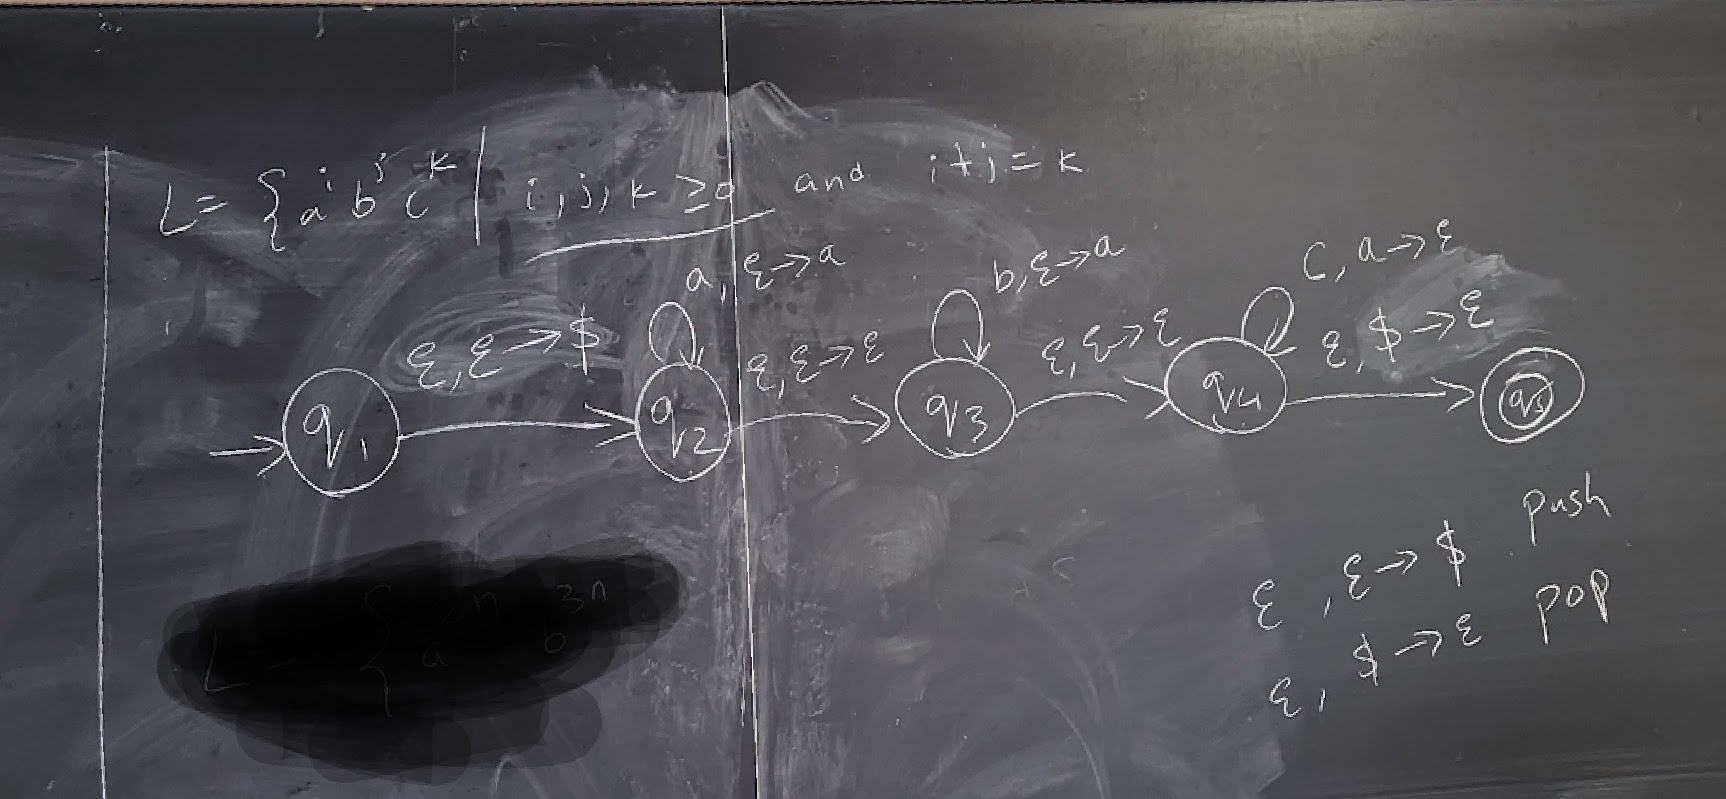 L = { a^i b^j c^k | i, j, k ≥ 0 and i + j = k
a, ε → a b, ε → a c, a → ε
ε, ε → $ ε, ε → ε ε, ε → ε ε, $ → ε
q1 q2 q3 q4 q5
ε, ε → $ push
ε, $ → ε pop
L = { a b^3n